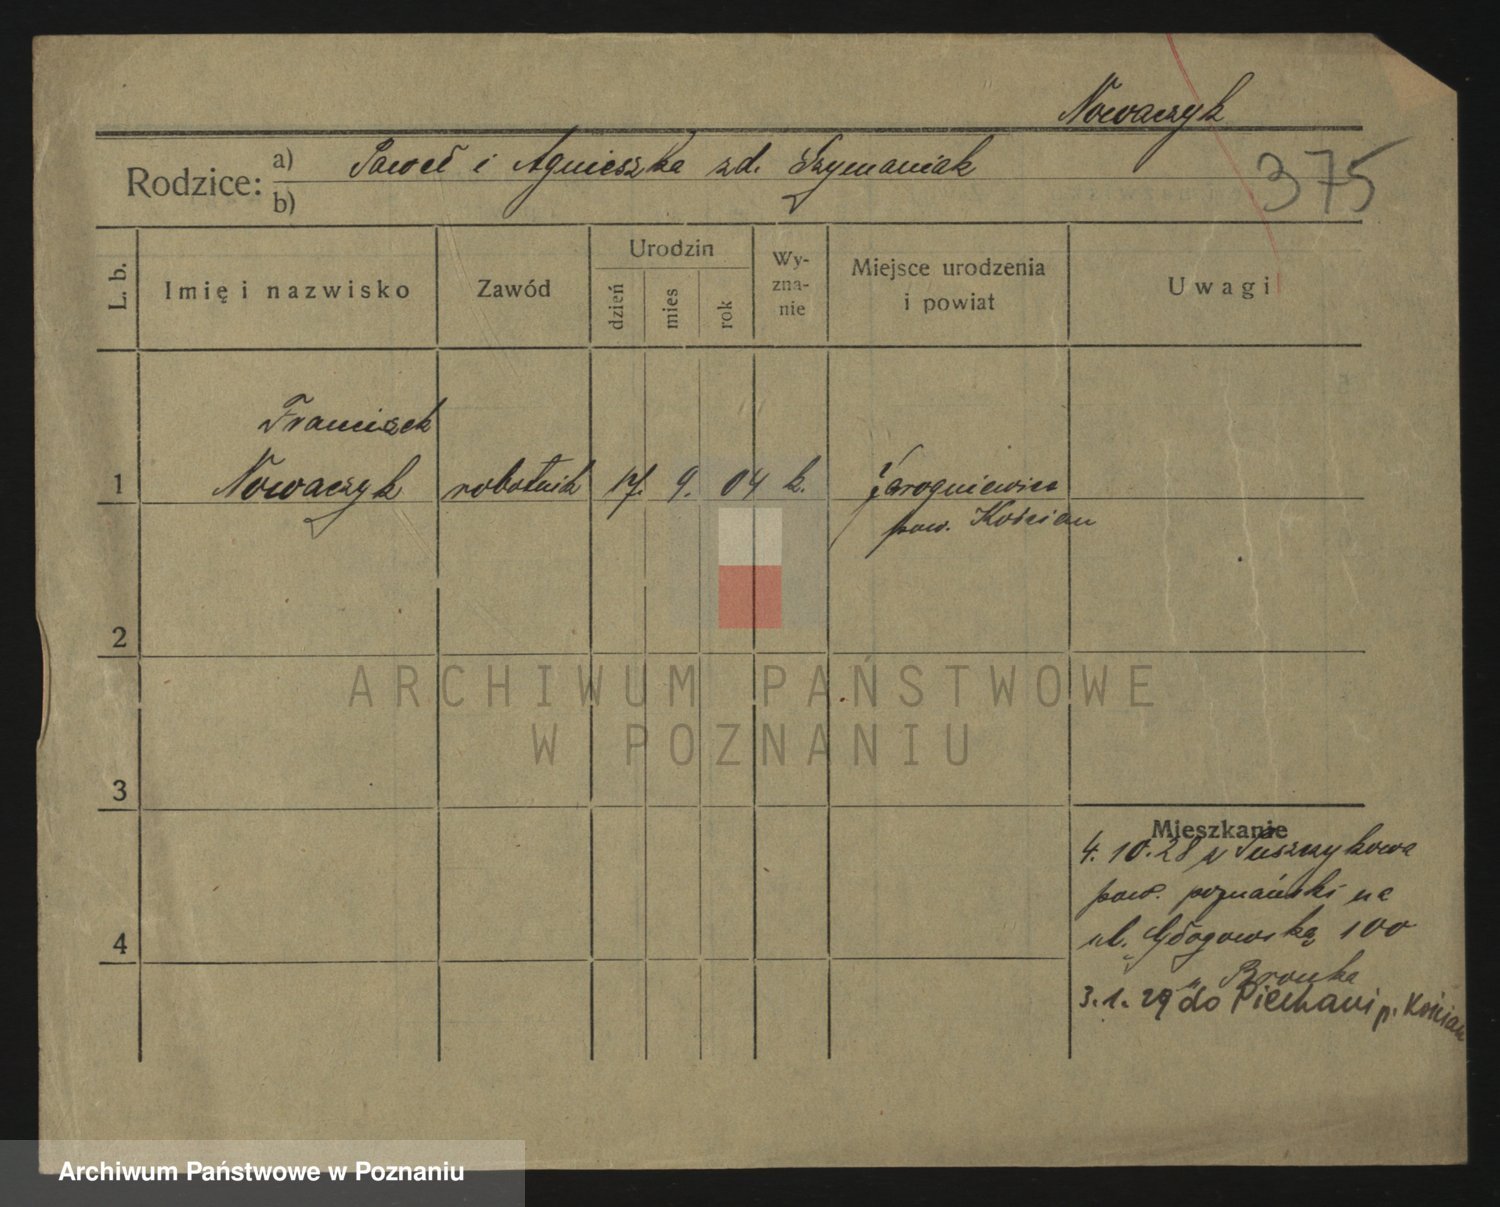 Nowaczyk
375
Rodzice: a) Paweł i Agnieszka zd. Szymaniak
b)
L. b. Imię i nazwisko Zawód Urodzin dzień mies rok Wy-zna-nie Miejsce urodzenia i powiat Uwagi
Franciszek
1 Nowaczyk robotnik 17. 9. 04 k.
pow. Kościan
2
ARCHIWUM PAŃSTWOWE
W POZNANIU
3
Mieszkanie
4. 10. 28 z
pow. poznański na
4 ul. Głogowską 100
u Bronka
3. 1. 29 do Piechani p. Kościan
Archiwum Państwowe w Poznaniu